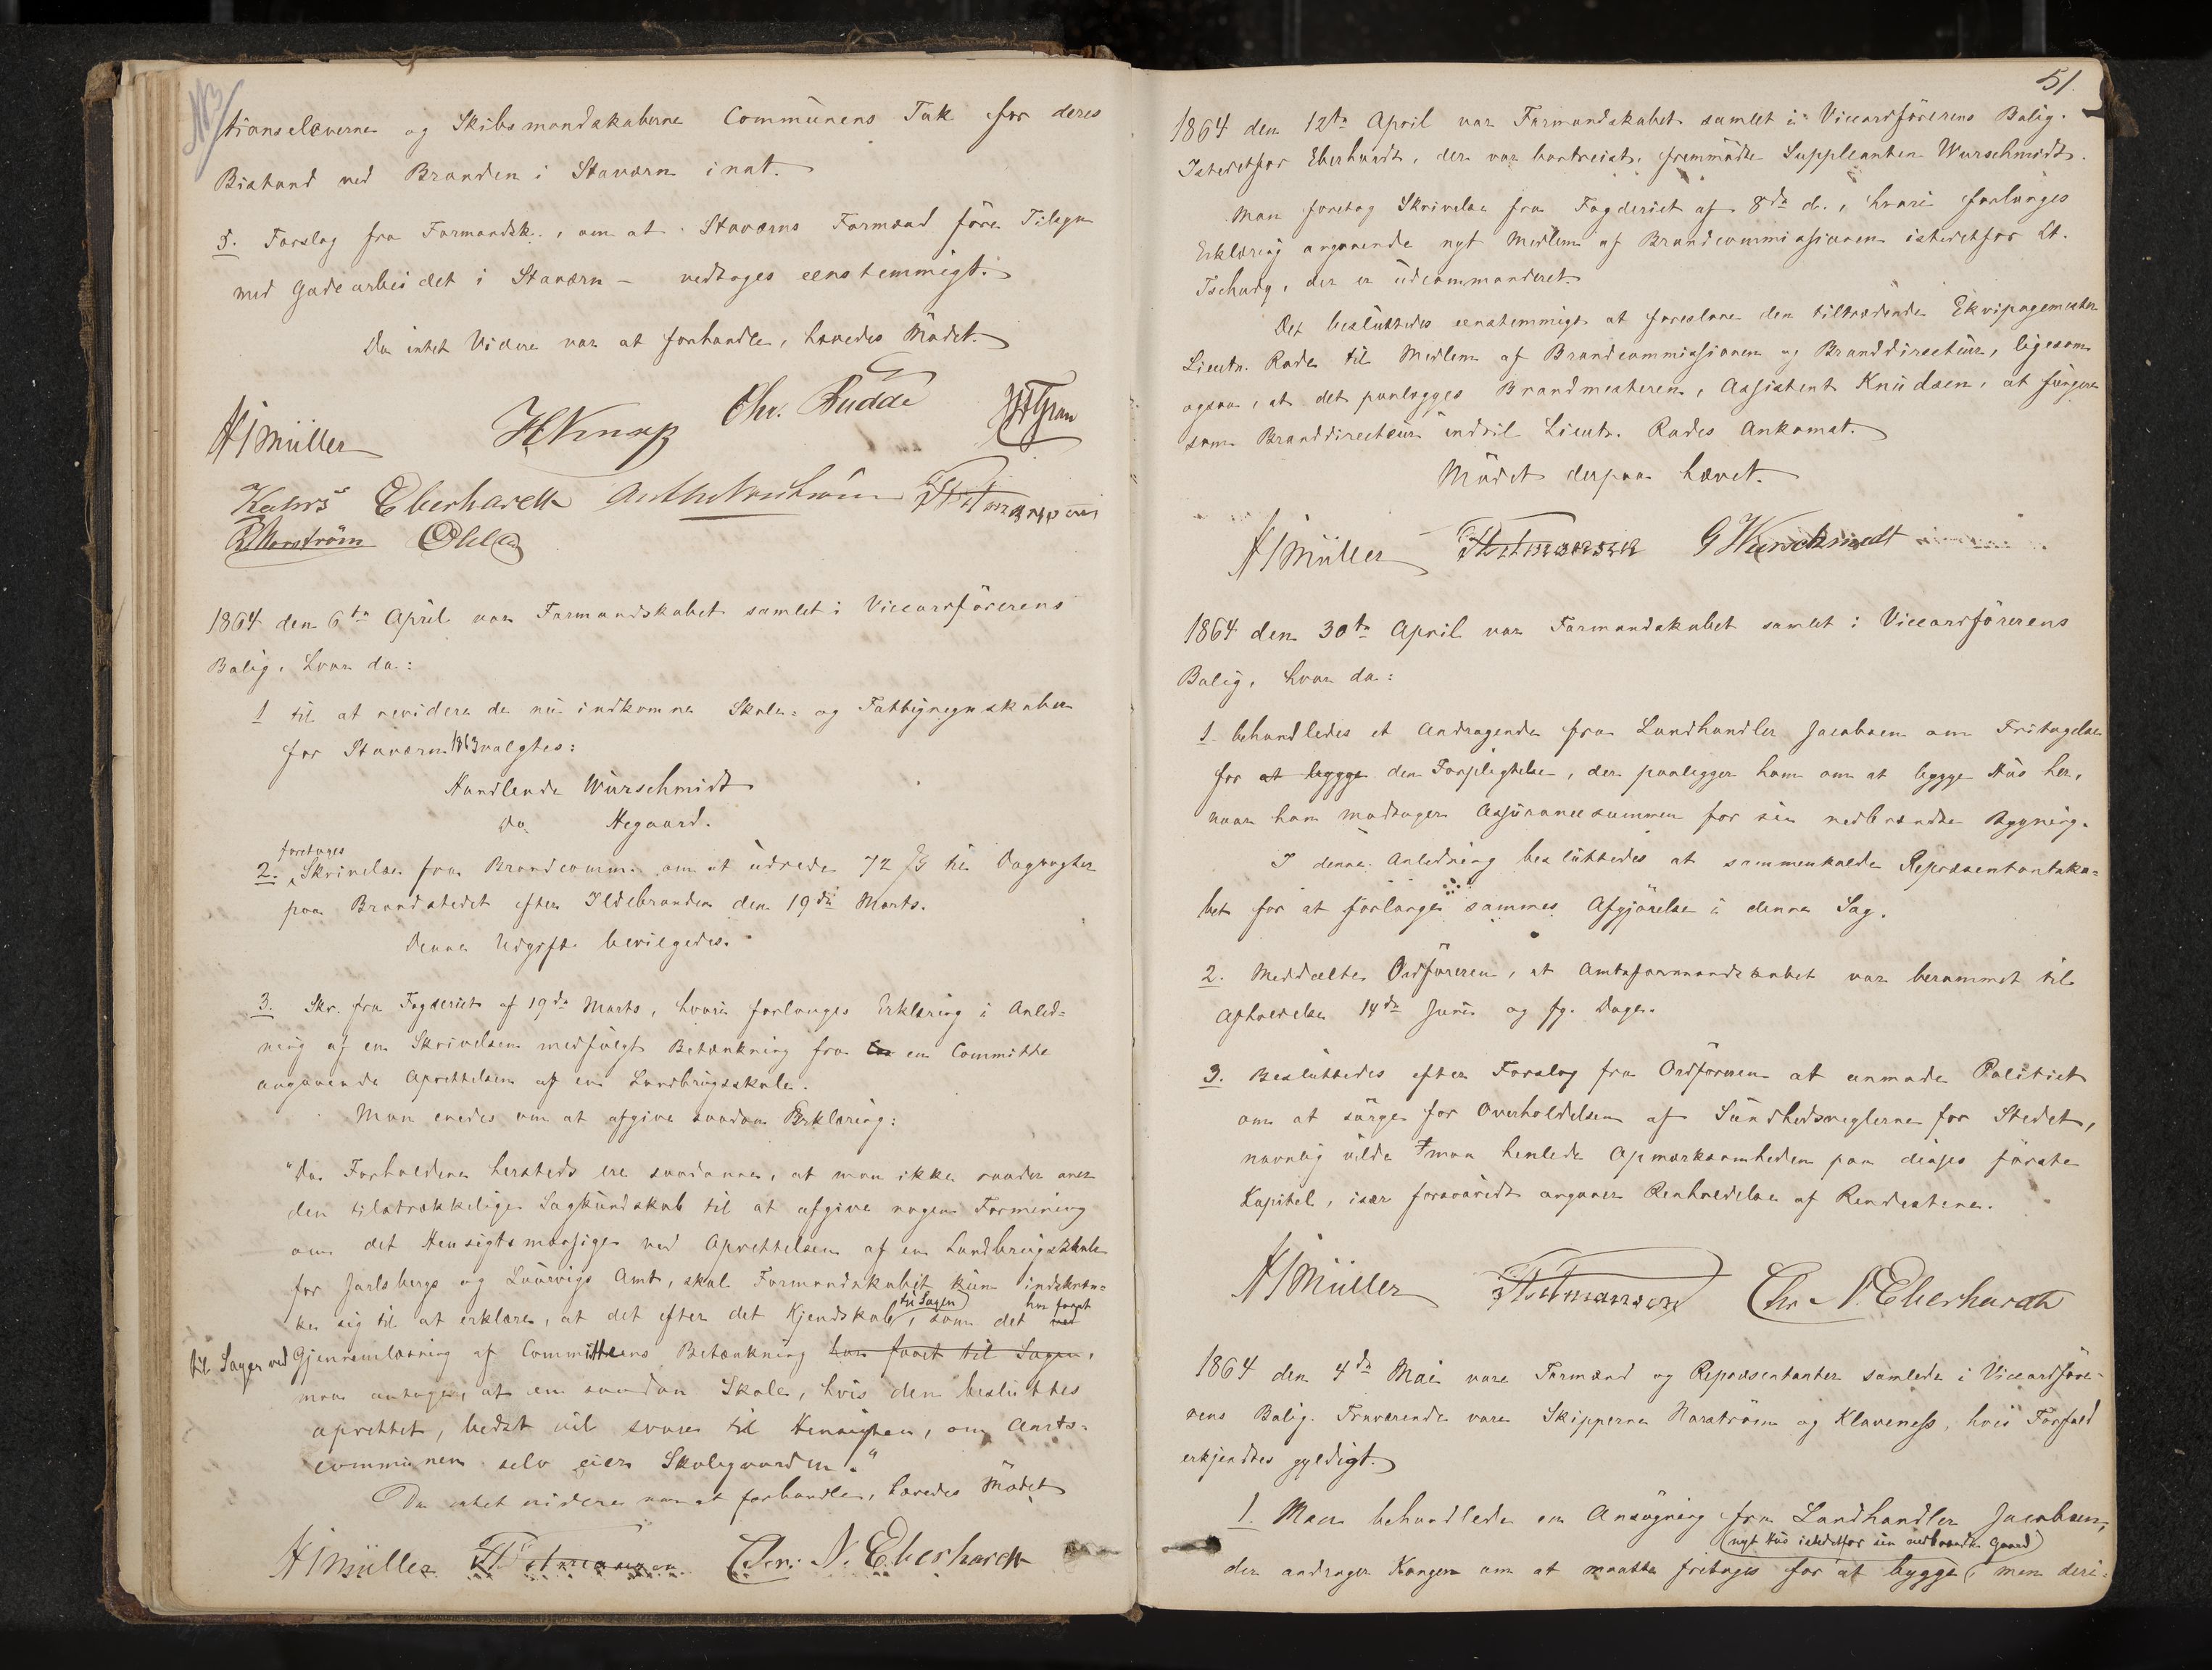 tionselæverne og Skibsmandskaberne Communens Tak for deres
Bistand ved Branden i Staværn inat.
5. Forslag fra Formandsk., om at Staværns Formænd före Tilsyn
med Gadearbeidet i Staværn – vedtoges eenstemmigt.
Da intet Videre var at forhandle, hævedes Mödet.
HJMüller Chr. Budde
Eberhardt
1864 den 6te April var Formandskabet samlet i Viceordförerens
Bolig, hvor da:
1 til at revidere de nu indkomne Skole- og Fattigregnskaber
for Staværn 1863 valgtes:
Handlende Würschmidt
do. Hegaard.
foretoges
2. Skrivelse fra Brandcomm. om at udrede 72 ß til Dagvagter
paa Brandstedet efter Ildebranden den 19de Marts.
Denne Udgift bevilgedes.
3. Skr. fra Fogderiet af 19de Marts, hvori forlanges Erklæring i Anled-
ning af en Skrivelsen medfulgt Betænkning fra en Committe
angaaende Oprettelsen af en Landbrugsskole.
Man enedes om at afgive saadan Erklæring:
"Da Forholdene hersteds ere saadanne, at man ikke raader over
den tilstrækkelige Sagkundskab til at afgive nogen Formening
om det Hensigtsmæssige ved Oprettelsen af en Landbrugsskole
for Jarlsbergs og Laurvigs Amt, skal Formandskabet kun indskræn-
til Sagen har faaet
ke sig til at erklære, at det efter det Kjendskab, som det
til Sagen ved Gjennemlæsning af Committeens Betænkning har faaet til Sagen,
maa antages, at en saadan Skole, hvis den besluttes
oprettet, bedst vil svare til Hensigten, om Amts-
communen selv eier Skolegaarden."
Da intet videre var at forhandle, hævedes Mödet
HJMüller Chr. N. Eberhardt
51.
1864 den 12te April var Formandskabet samlet i Viceordförerens Bolig.
Istedetfor Eberhardt, der var bortreist, fremmödte Suppleanten Wurschmidt.
Man foretog Skrivelse fra Fogderiet af 8de d., hvori forlanges
Erklæring angaaende nyt Medlem af Brandcommissionen istedetfor Lt.
Tschudy, der er udcommanderet.
Det besluttedes eenstemmigt at foreslaae den tiltrædende Ekvipagemester
Lieutn. Rode til Medlem af Brandcommissionen og Branddirecteur, ligesom
ogsaa, at det paalægges Brandmesteren, Assistent Knudsen, at fungere
som Branddirecteur indtil Lieutn. Rodes Ankomst.
Mödet derpaa hævet.
HJMüller G Wurschmidt
1864 den 30te April var Formandskabet samlet i Viceordförerens
Bolig, hvor da:
1. behandledes et Andragende fra Landhandler Jacobsen om Fritagelse
for at bygge den Forpligtelse, der paaligger ham om at bygge Hus her,
naar han modtager Assurancesummen for sin nedbrændte Bygning.
I denne Anledning besluttedes at sammenkalde Repræsentantska-
bet for at forlange sammes Afgjörelse i denne Sag.
2. Meddeelte Ordföreren, at Amtsformandskabet var berammet til
Afholdelse 14de Juni og fg. Dage.
3. Besluttedes efter Forslag fra Ordföreren at anmode Politiet
om at sörge for Overholdelsen af Sundhedsreglerne for Stedet,
navnlig vilde man henlede Opmærksomheden paa dinses förste
Kapitel, især forsaavidt angaaer Renholdelse af Rendestene.
HJMüller Chr N. Eberhardt
1864 den 4de Mai vare Formænd og Repræsentanter samlede i Viceordföre-
rens Bolig. Fraværende vare Skipperne Norström og Klaveness, hvis Forfald
erkjendtes gyldigt.
1. Man behandlede en Ansögning fra Landhandler Jacobsen,
(nyt Hus istedetfor sin nedbrændte Gaard)
der andrager Kongen om at maatte fritages for at bygge, men deri-